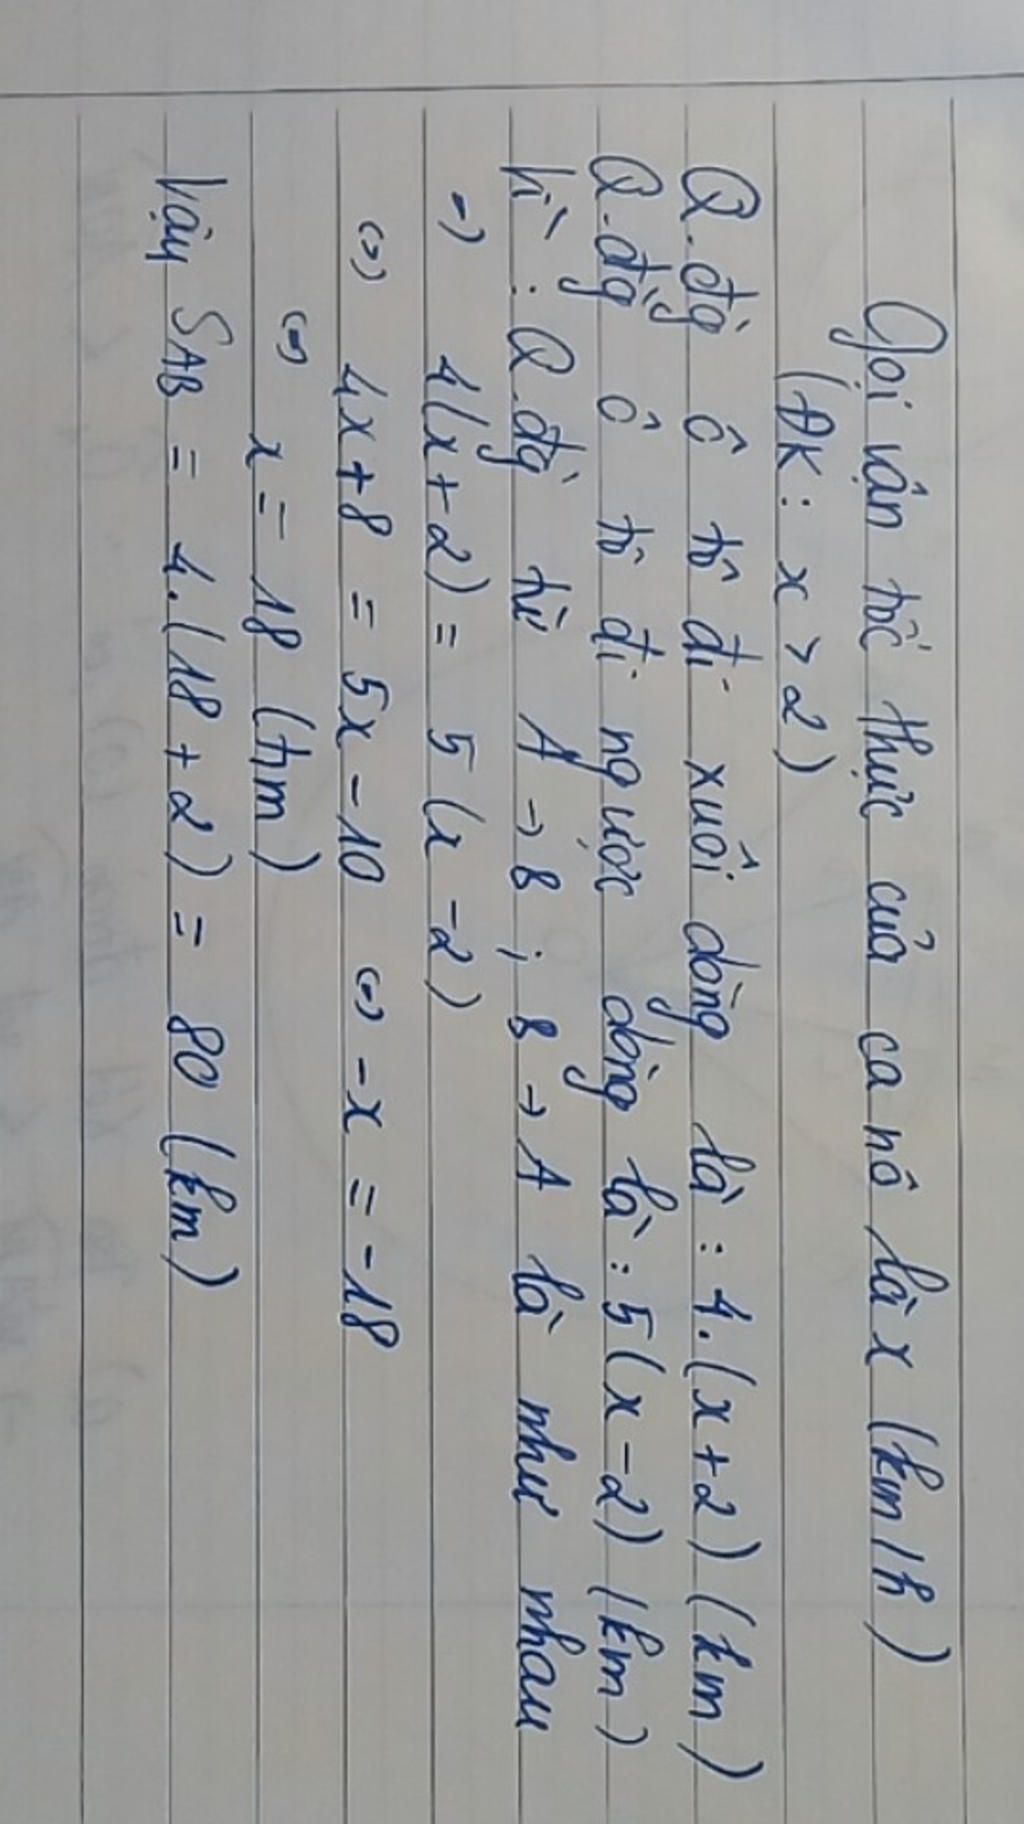 Gọi vận tốc thực của ca nô là x (km/h)
(ĐK: x > 2)
Q.đg ô tô đi xuôi dòng là : 4.(x+2) (km)
Q.đg ô tô đi ngược dòng là : 5(x-2) (km)
Vì : Q.đg từ A → B ; B → A là như nhau
=) 4(x+2) = 5(x-2)
(=) 4x+8 = 5x-10 (=) -x = -18
(=) x = 18 (km)
Vậy SAB = 4.(18+2) = 80 (km)